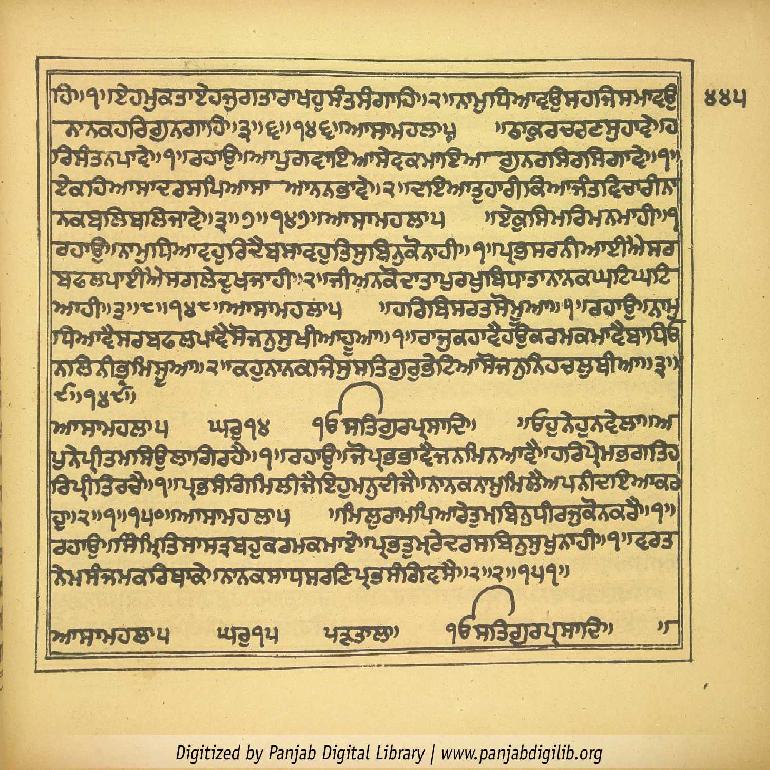 ਹਿ॥੧॥ਏਹਮੁਕਤਾਏਹਜੁਗਤਾਰਾਖਹੁਸੰਤਸੰਗਾਹਿ॥੨॥ਨਾਮੁਧਿਆਵਉਸਹਜਿਸਮਾਵਉ
੪੪੫
ਨਾਨਕਹਰਿਗੁਨਗਾਹਿ॥੩॥੬॥੧੪੬॥ਆਸਾਮਹਲਾ੫ ॥ਠਾਕੁਰਚਰਣਸੁਹਾਵੇ॥ਹ
ਰਿਸੰਤਨਪਾਵੇ॥੧॥ਰਹਾਉ॥ਆਪੁਗਵਾਇਆਸੇਵਕਮਾਇਆ ਗੁਨਰਸਿਰਸਿਗਾਵੇ॥੧॥
ਏਕਹਿਆਸਾਦਰਸਪਿਆਸਾ ਆਨਨਭਾਵੇ॥੨॥ਦਇਆਤੁਹਾਰੀਕਿਆਜੰਤਵਿਚਾਰੀਨਾ
ਨਕਬਲਿਬਲਿਜਾਵੇ॥੩॥੭॥੧੪੭॥ਆਸਾਮਹਲਾ੫ ॥ਏਕੁਸਿਮਰਿਮਨਮਾਹੀ॥੧
ਰਹਾਉ॥ਨਾਮੁਧਿਆਵਹੁਰਿਦੈਬਸਾਵਹੁਤਿਸੁਬਿਨੁਕੋਨਾਹੀ॥੧॥ਪ੍ਰਭਸਰਨੀਆਈਐਸਰ
ਬਫਲਪਾਈਐਸਗਲੇਦੁਖਜਾਹੀ॥੨॥ਜੀਅਨਕੋਦਾਤਾਪੁਰਖੁਬਿਧਾਤਾਨਾਨਕਘਟਿਘਟਿ
ਆਹੀ॥੩॥੮॥੧੪੮॥ਆਸਾਮਹਲਾ੫ ॥ਹਰਿਬਿਸਰਤਸੋਮੂਆ॥੧॥ਰਹਾਉ॥ਨਾਮੁ
ਧਿਆਵੈਸਰਬਫਲਪਾਵੈਸੋਜਨੁਸੁਖੀਆਹੂਆ॥੧॥ਰਾਜੁਕਹਾਵੈਹਉਕਰਮਕਮਾਵੈਬਾਧਿਓ
ਨਲਿਨੀਭ੍ਰਮਿਸੂਆ॥੨॥ਕਹੁਨਾਨਕਜਿਸੁਸਤਿਗੁਰੁਭੇਟਿਆਸੋਜਨੁਨਿਹਚਲੁਥੀਆ॥੩॥
੯॥੧੪੯॥
ਆਸਾਮਹਲਾ੫ ਘਰੁ੧੪ ੴਸਤਿਗੁਰਪ੍ਰਸਾਦਿ॥ ॥ਓਹੁਨੇਹੁਨਵੇਲਾ॥ਅ
ਪੁਨੇਪ੍ਰੀਤਮਸਿਉਲਾਗਿਰਹੈ॥੧॥ਰਹਾਉ॥ਜੋਪ੍ਰਭਭਾਵੈਜਨਮਿਨਆਵੈ॥ਹਰਿਪ੍ਰੇਮਭਗਤਿਹ
ਰਿਪ੍ਰੀਤਿਰਚੈ॥੧॥ਪ੍ਰਭਸੰਗਿਮਿਲੀਜੈਇਹੁਮਨੁਦੀਜੈ॥ਨਾਨਕਨਾਮੁਮਿਲੈਅਪਨੀਦਇਆਕਰ
ਹੁ॥੨॥੧॥੧੫੦॥ਆਸਾਮਹਲਾ੫ ॥ਮਿਲੁਰਾਮਪਿਆਰੇਤੁਮਬਿਨੁਧੀਰਜੁਕੋਨਕਰੈ॥੧॥
ਰਹਾਉ॥ਸਿੰਮ੍ਰਿਤਿਸਾਸਤ੍ਰਬਹੁਕਰਮਕਮਾਏ॥ਪ੍ਰਭਤੁਮਰੇਦਰਸਬਿਨੁਸੁਖੁਨਾਹੀ॥੧॥ਵਰਤ
ਨੇਮਸੰਜਮਕਰਿਥਾਕੇ॥ਨਾਨਕਸਾਧਸਰਣਿਪ੍ਰਭਸੰਗਿਵਸੈ॥੨॥੨॥੧੫੧॥
ਆਸਾਮਹਲਾ੫ ਘਰੁ੧੫ ਪੜਤਾਲ॥ ੴਸਤਿਗੁਰਪ੍ਰਸਾਦਿ॥ ॥
Digitized by Panjab Digital Library | www.panjabdigilib.org